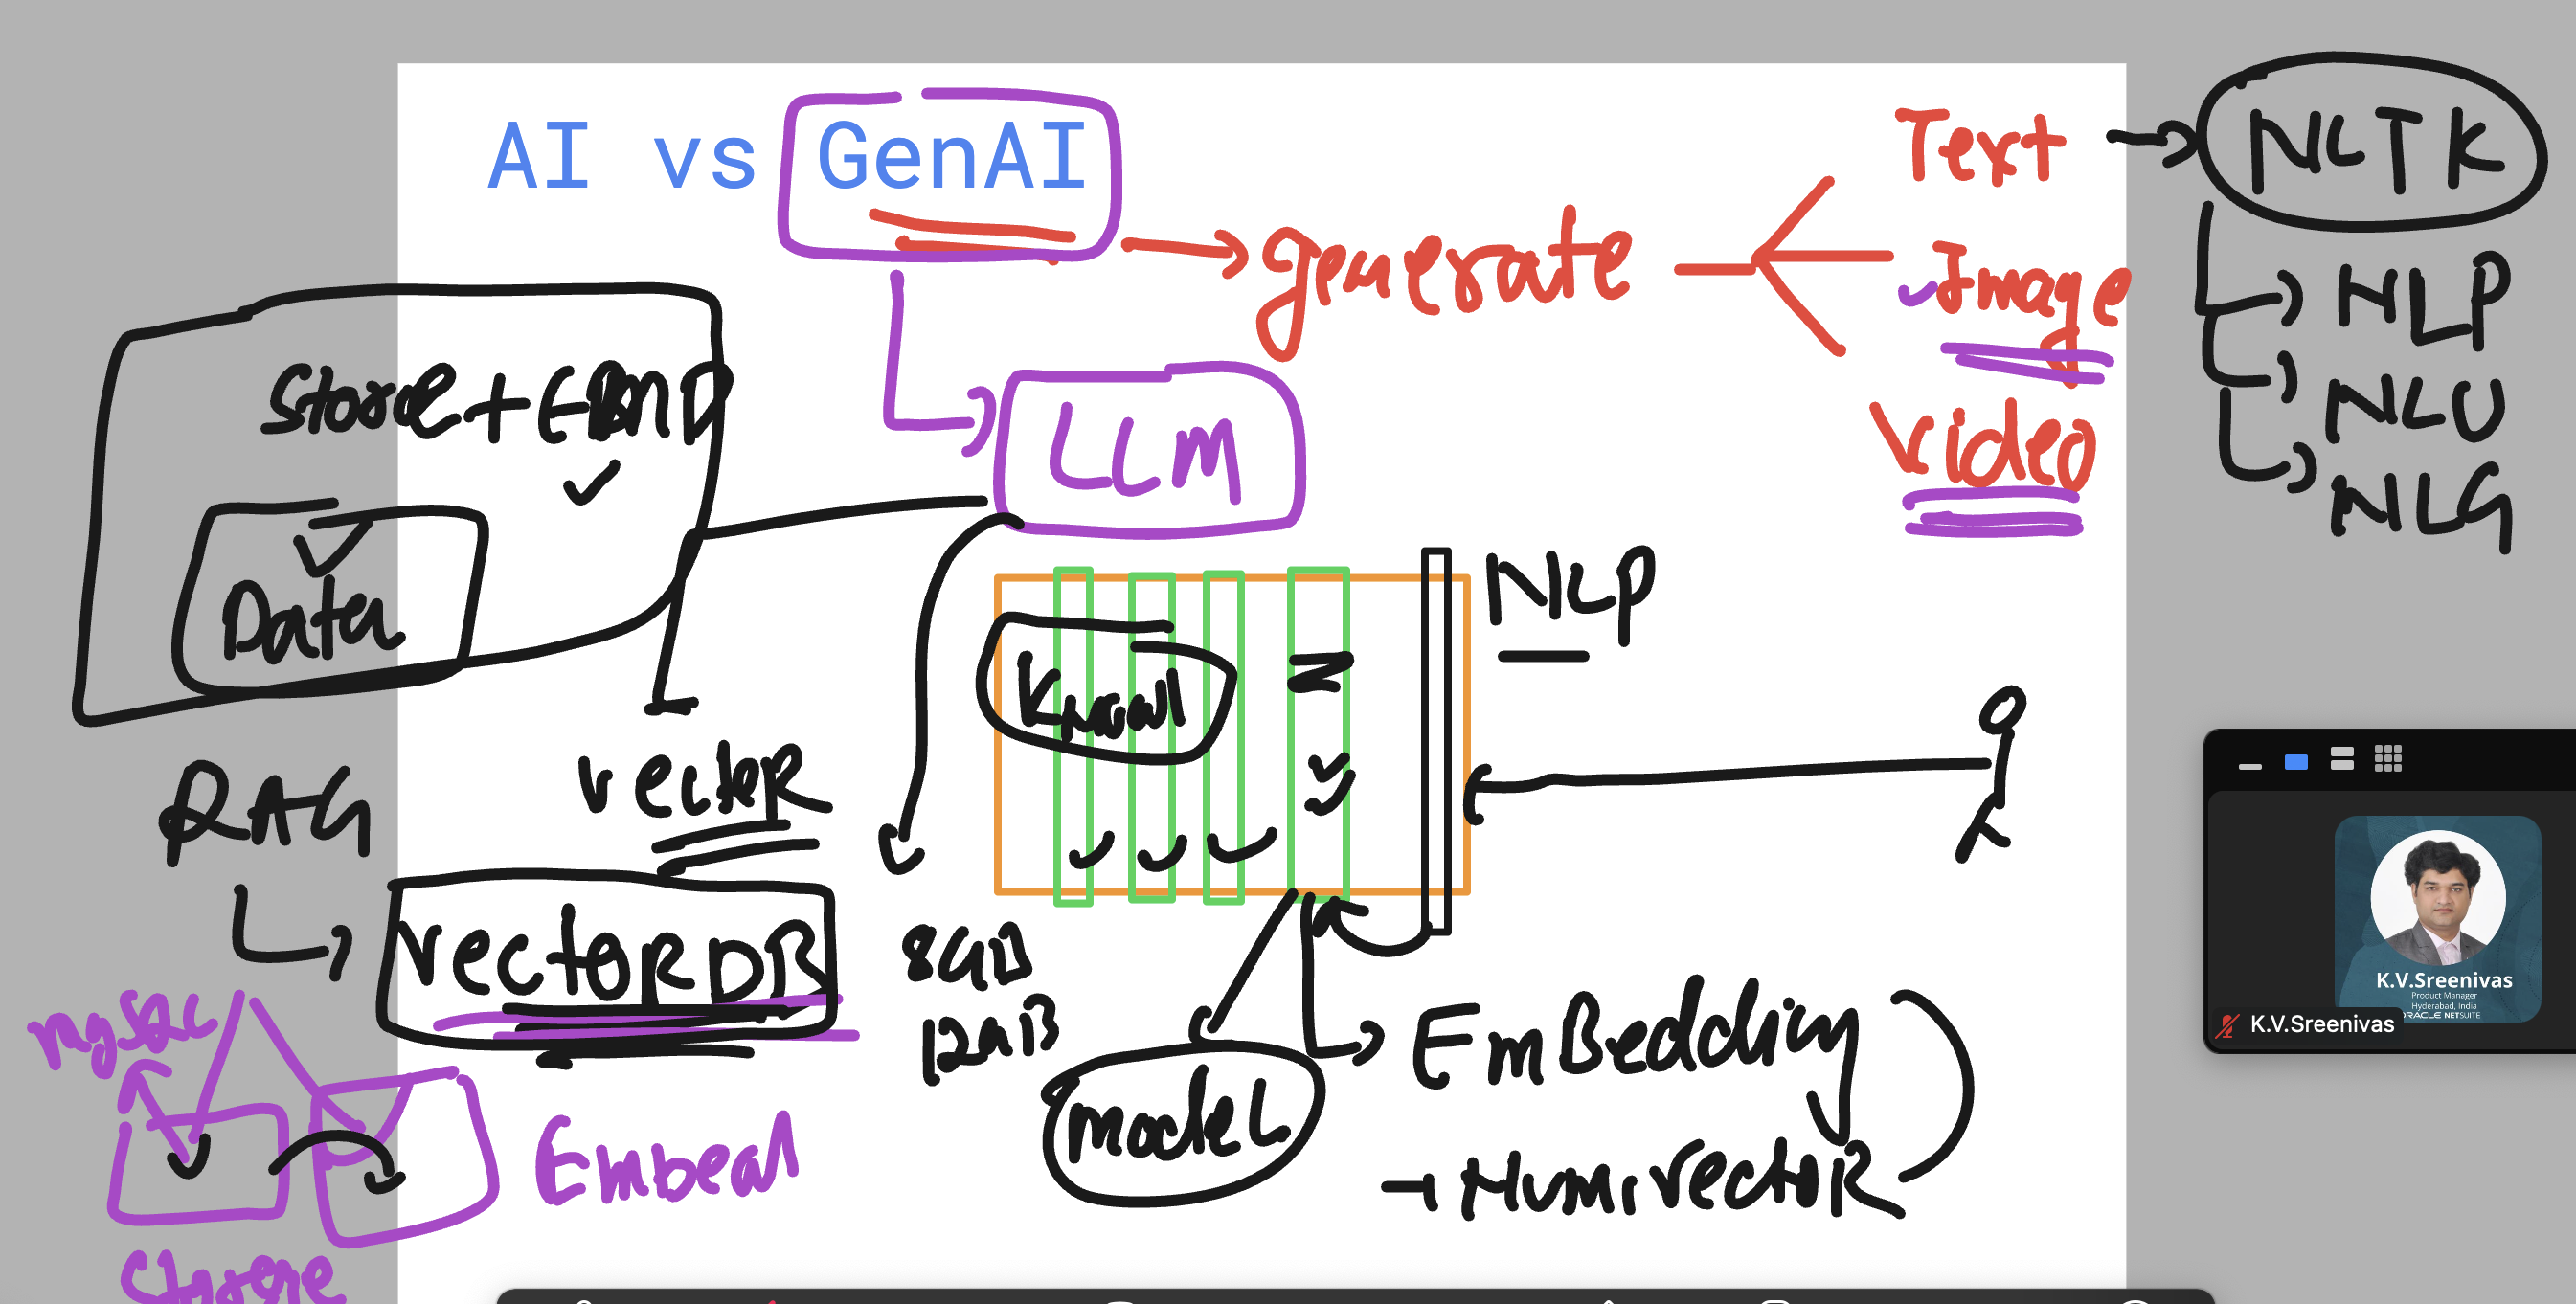 AI vs GenAI
generate
Text
Image
Video
NLTK
NLP
NLU
NLG
Store +
Data
LLM
NLP
RAG
vector
vector DB
8GB
12GB
model
EmBedding
Num, vector
mySQL
Embed
Storage
K.V.Sreenivas
Product Manager
Hyderabad, India
ORACLE NETSUITE
K.V.Sreenivas